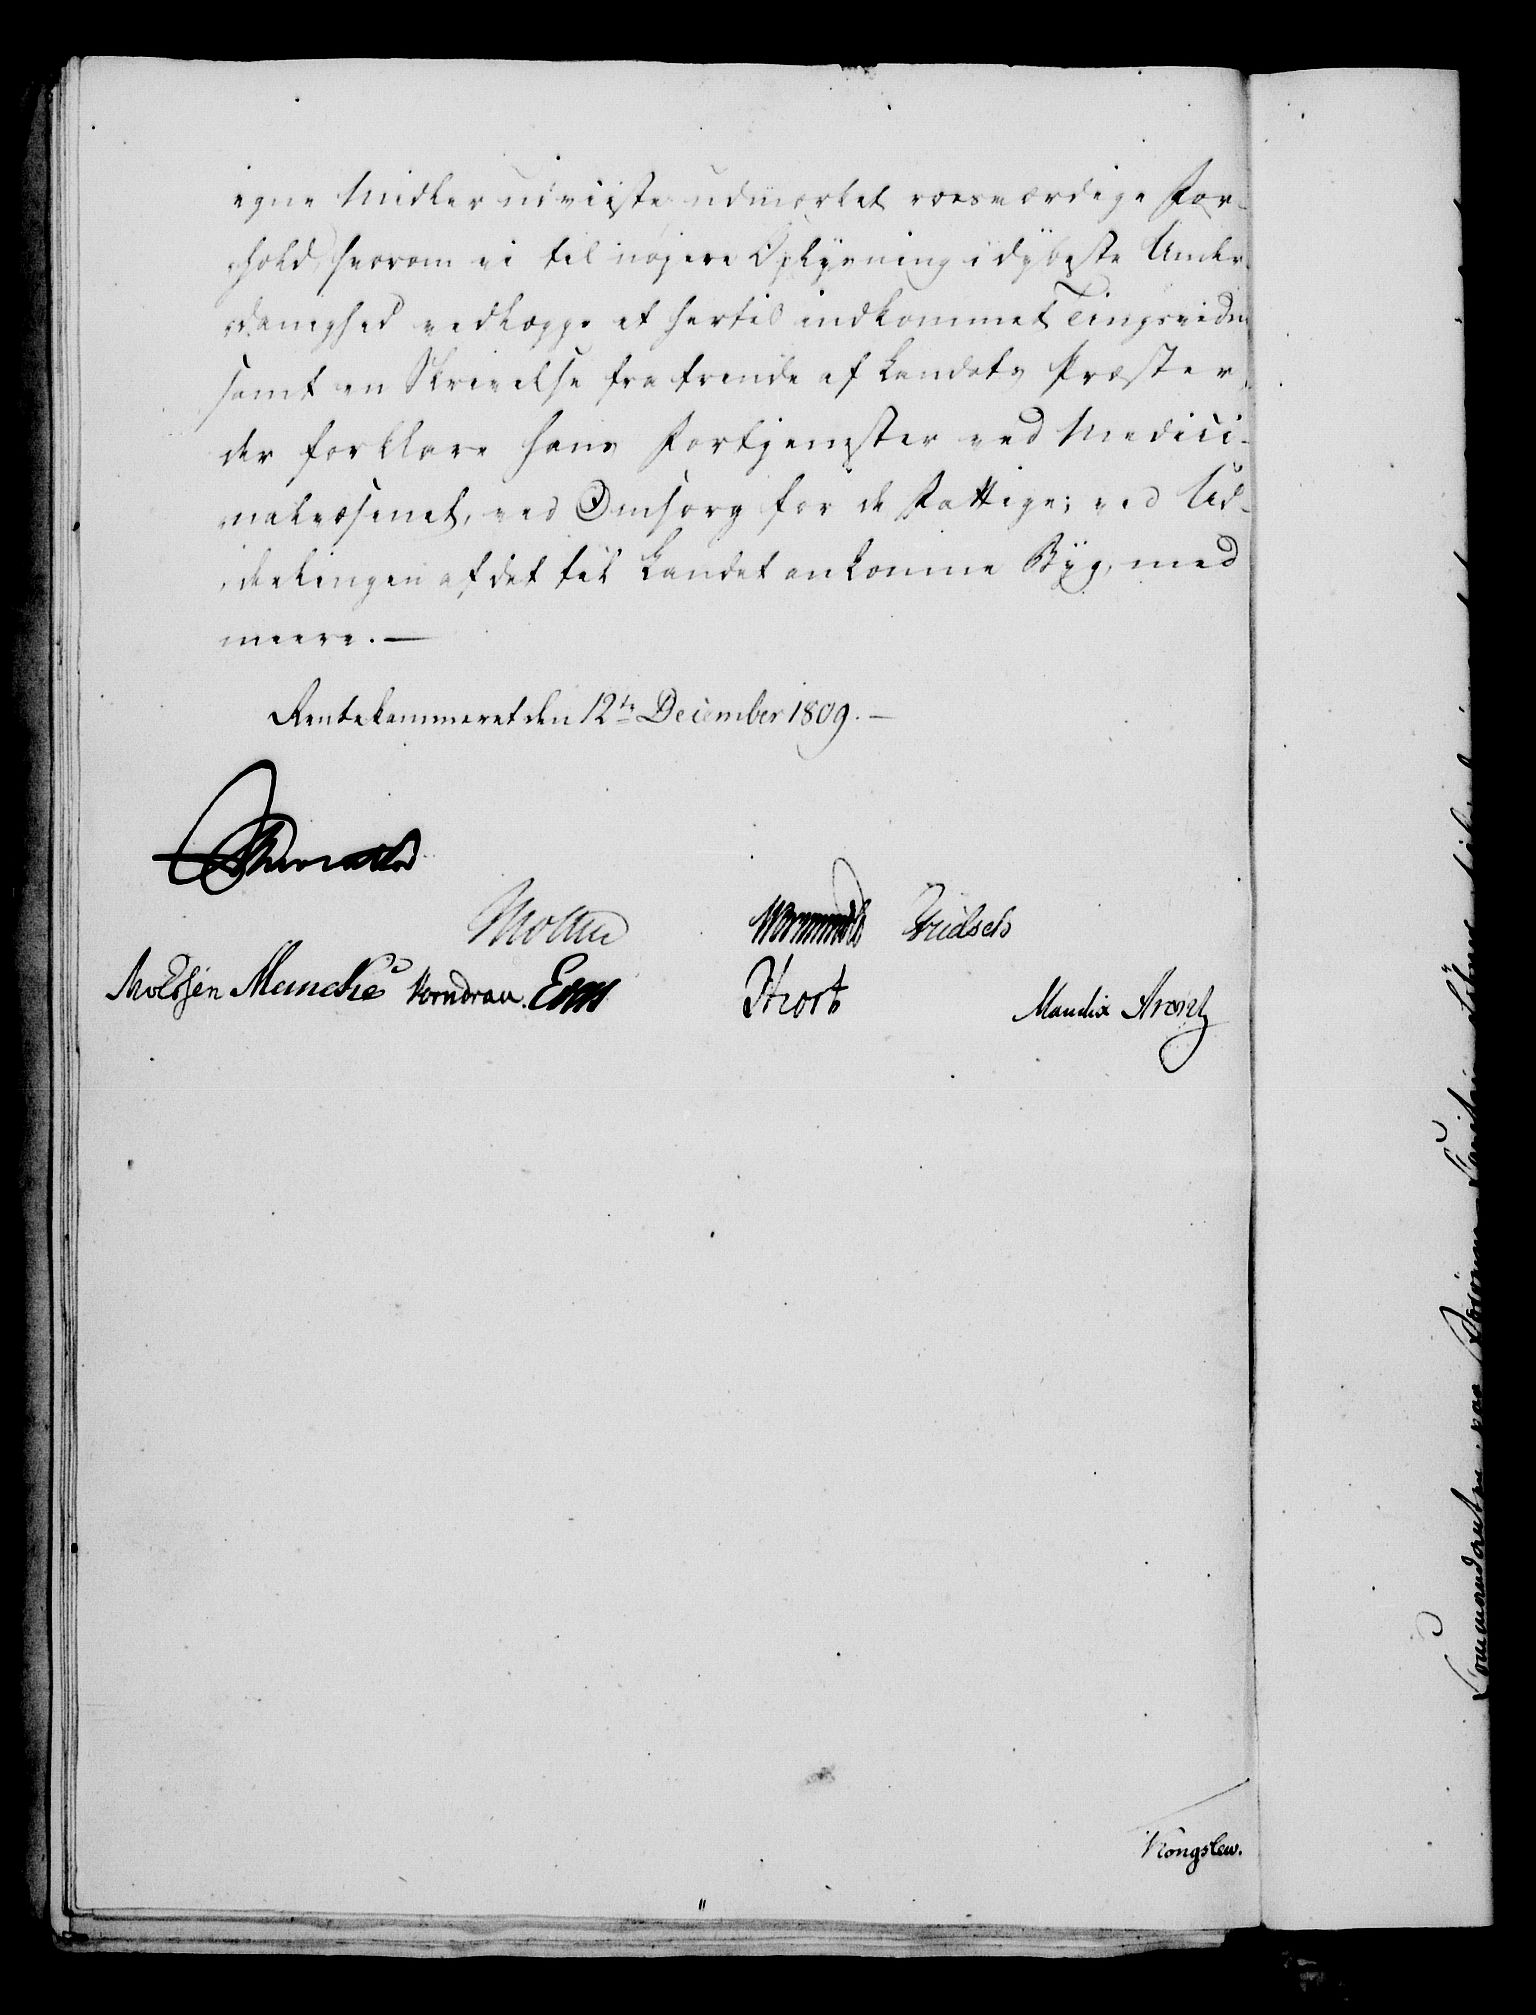 egne Midler udviiste udmærket roesværdige For-
hold, hvorom vi til nøjere Oplysning i dybeste Under-
danighed vedlægge et hertil indkommet Tingsvidne
samt en Skrivelse fra trende af Landets Præster,
der forklare hans Fortjenester ved Medici-
nalvæsenet, ved Omsorg for de Fattige; ved Ud-
deelingen af det til Landet ankomne Byg, med
meere. —
Rentekammeret den 12te December 1809. —
Moltke Wormskiold
Knudsen Manthey Vorndran. Hiort Mandix Arentz
Kongslew.
Commandanten paa Færøerne